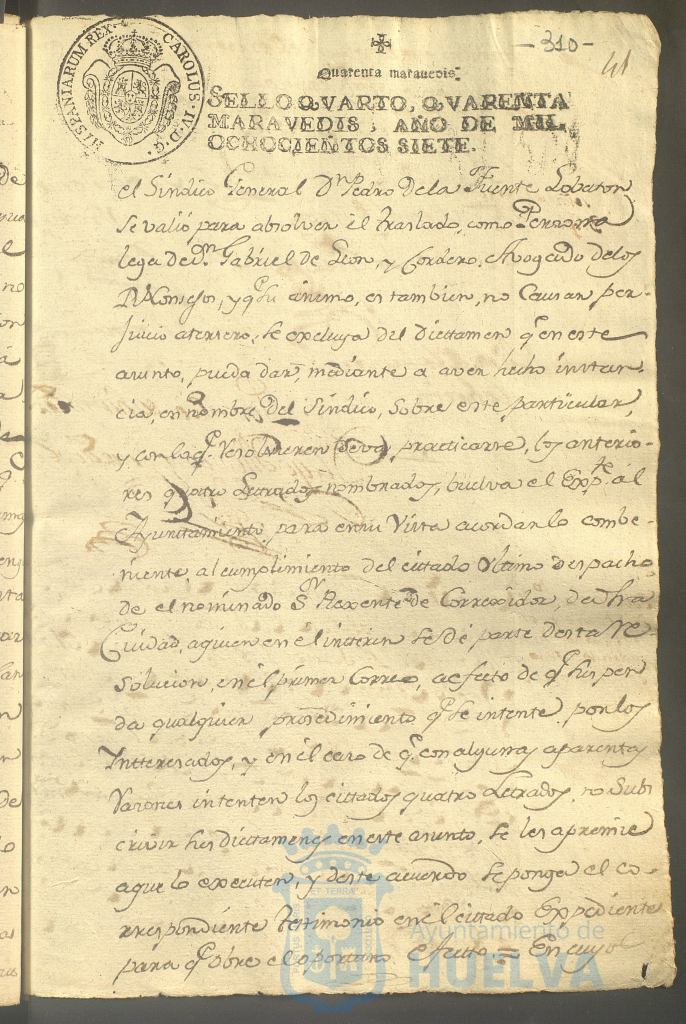 HISPANIARUM REX. CAROLUS. IV. D. G.
-310-
41
Quarenta marauedis.
SELLO QVARTO, QVARENTA
MARAVEDIS, AÑO DE MIL
OCHOCIENTOS SIETE.
el Síndico General Dn Pedro dela Fuente Lobaton
se valió para absolver el traslado, como Persona
lega de Dn Gabriel de Leon, y Cordero, Avogado delos
Rs Consejos, y qe su ánimo, es tambien, no Causar per-
juicio atersero, se excluya del Dictamen qe en este
asunto, pueda dar, mediante a aver hecho instan-
cia, en nombre del Síndico, sobre este particular,
y con la qe resolvieren deva practicarse, los anterio-
res quatro Letrados nombrados, buelva el Expte al
Ayuntamiento para en su Vista acordar lo combe-
niente, al cumplimiento del citado Ultimo despacho,
de el nominado Sr Rexente de Correxidor, de dha
Ciudad, aquien en el intterin se dé parte desta Re
solucion, en el primer Correo, aefecto de qe suspen
da qualquier prosedimiento qe se intente por los
Ynttersados, y en el caso de qe con algunas aparentes
Rasones intenten los cittados quatro Letrados, no Subs
crivir sus dictamenes en este asunto, se les apremie
aque lo executen, y deste acuerdo se ponga el co-
rrespondiente testimonio en el cittado Expediente
para qe obre el oportuno efecto. = En cuyo
ET TERRA
Ayuntamiento de
HUELVA